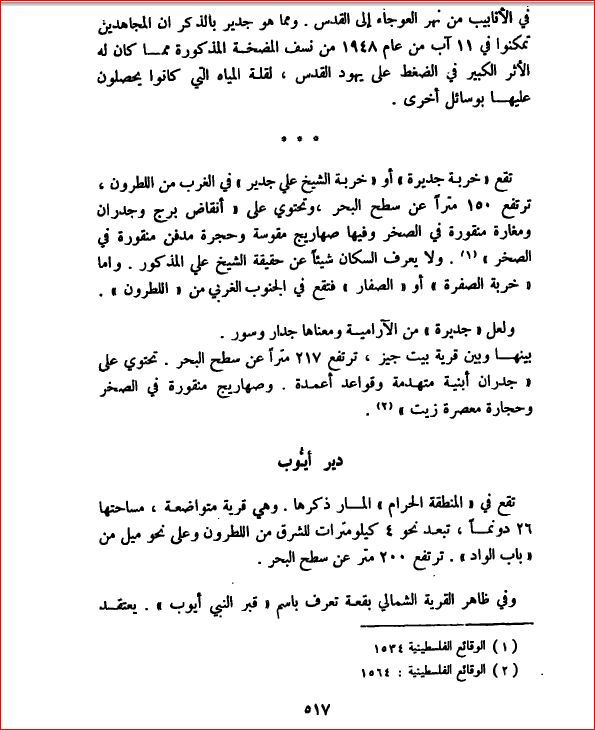 في الأنابيب من نهر العوجاء إلى القدس . ومما هو جدير بالذكر ان المجاهدين
تمكنوا في ١١ آب من عام ١٩٤٨ من نسف المضخة المذكورة ممـا كان له
الأثر الكبير في الضغط على يهود القدس ، لقلة المياه التي كانوا يحصلون
عليهـا بوسائل أخرى .
* * *
تقع « خربة جديرة » أو « خربة الشيخ علي جدير » في الغرب من اللطرون ،
ترتفع ١٥٠ متراً عن سطح البحر ،وتحتوي على « أنقاض برج وجدران
ومغارة منقورة في الصخر وفيها صهاريج مقوسة وحجرة مدفن منقورة في
الصخر » (١) . ولا يعرف السكان شيئاً عن حقيقة الشيخ علي المذكور . واما
« خربة الصفرة » أو « الصفار » فتقع في الجنوب الغربي من « اللطرون » .
ولعل « جديرة » من الآراميـة ومعناها جدار وسور .
بينهـا وبين قرية بيت جيز ، ترتفع ٢١٧ متراً عن سطح البحر . تحتوي على
« جدران أبنية متهدمة وقواعد أعمدة . وصهاريج منقورة في الصخر
وحجارة معصرة زيت » (٢) .
دير أيّوب
تقع في « المنطقة الحرام » المـار ذكرها . وهي قرية متواضعـة ، مساحتها
٢٦ دونمـاً ، تبعـد نحو ٤ كيلومترات للشرق من اللطرون وعلى نحو ميل من
« باب الواد » . ترتفع ٢٠٠ متر عن سطح البحر .
وفي ظاهر القرية الشمالي بقعة تعرف باسم « قبر النبي أيوب » . يعتقـد
(١) الوقائع الفلسطينية ١٥٣٤
(٢) الوقائع الفلسطينية : ١٥٦٤
٥١٧